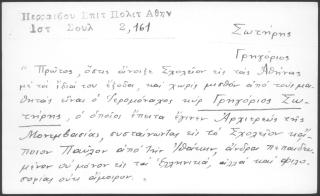 Περραιβού Επιτ Πολιτ Αθην
Ιστ Σουλ 2,161
Σωτήρης
Γρηγόριος
"Πρῶτος, ὅστις ἄνοιξε Σχολεῖον εἰς τὰς Ἀθήνας
μὲ τὰ ἴδιά του ἔξοδα, καὶ χωρὶς μισθὸν ἀπὸ τοὺς μα-
θητὰς εἶναι ὁ Ἱερομόναχος κὺρ Γρηγόριος Σω-
τήρης, ὁ ὁποῖος ἔπειτα ἔγινεν Ἀρχιερεὺς τῆς
Μονεμβασίας, συσταίνωντας εἰς τὸ Σχολεῖον κά-
ποιον Παῦλον ἀπὸ τὴν Ἰθάκην, ἄνδρα πεπαιδευ-
μένον οὐ μόνον εἰς τὰ Ἑλληνικά, ἀλλὰ καὶ φιλο-
σοφίας οὐκ ἄμοιρον.